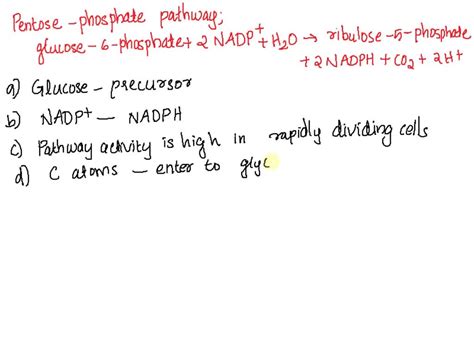 Pentose - phosphate pathway;
glucose - 6 - phosphate + 2 NADP⁺ + H₂O → ribulose - 5 - phosphate
+ 2 NADPH + CO₂ + 2H⁺
a) Glucose - precursor
b) NADP⁺ — NADPH
c) Pathway activity is high in rapidly dividing cells
d) C atoms — enter to glyc